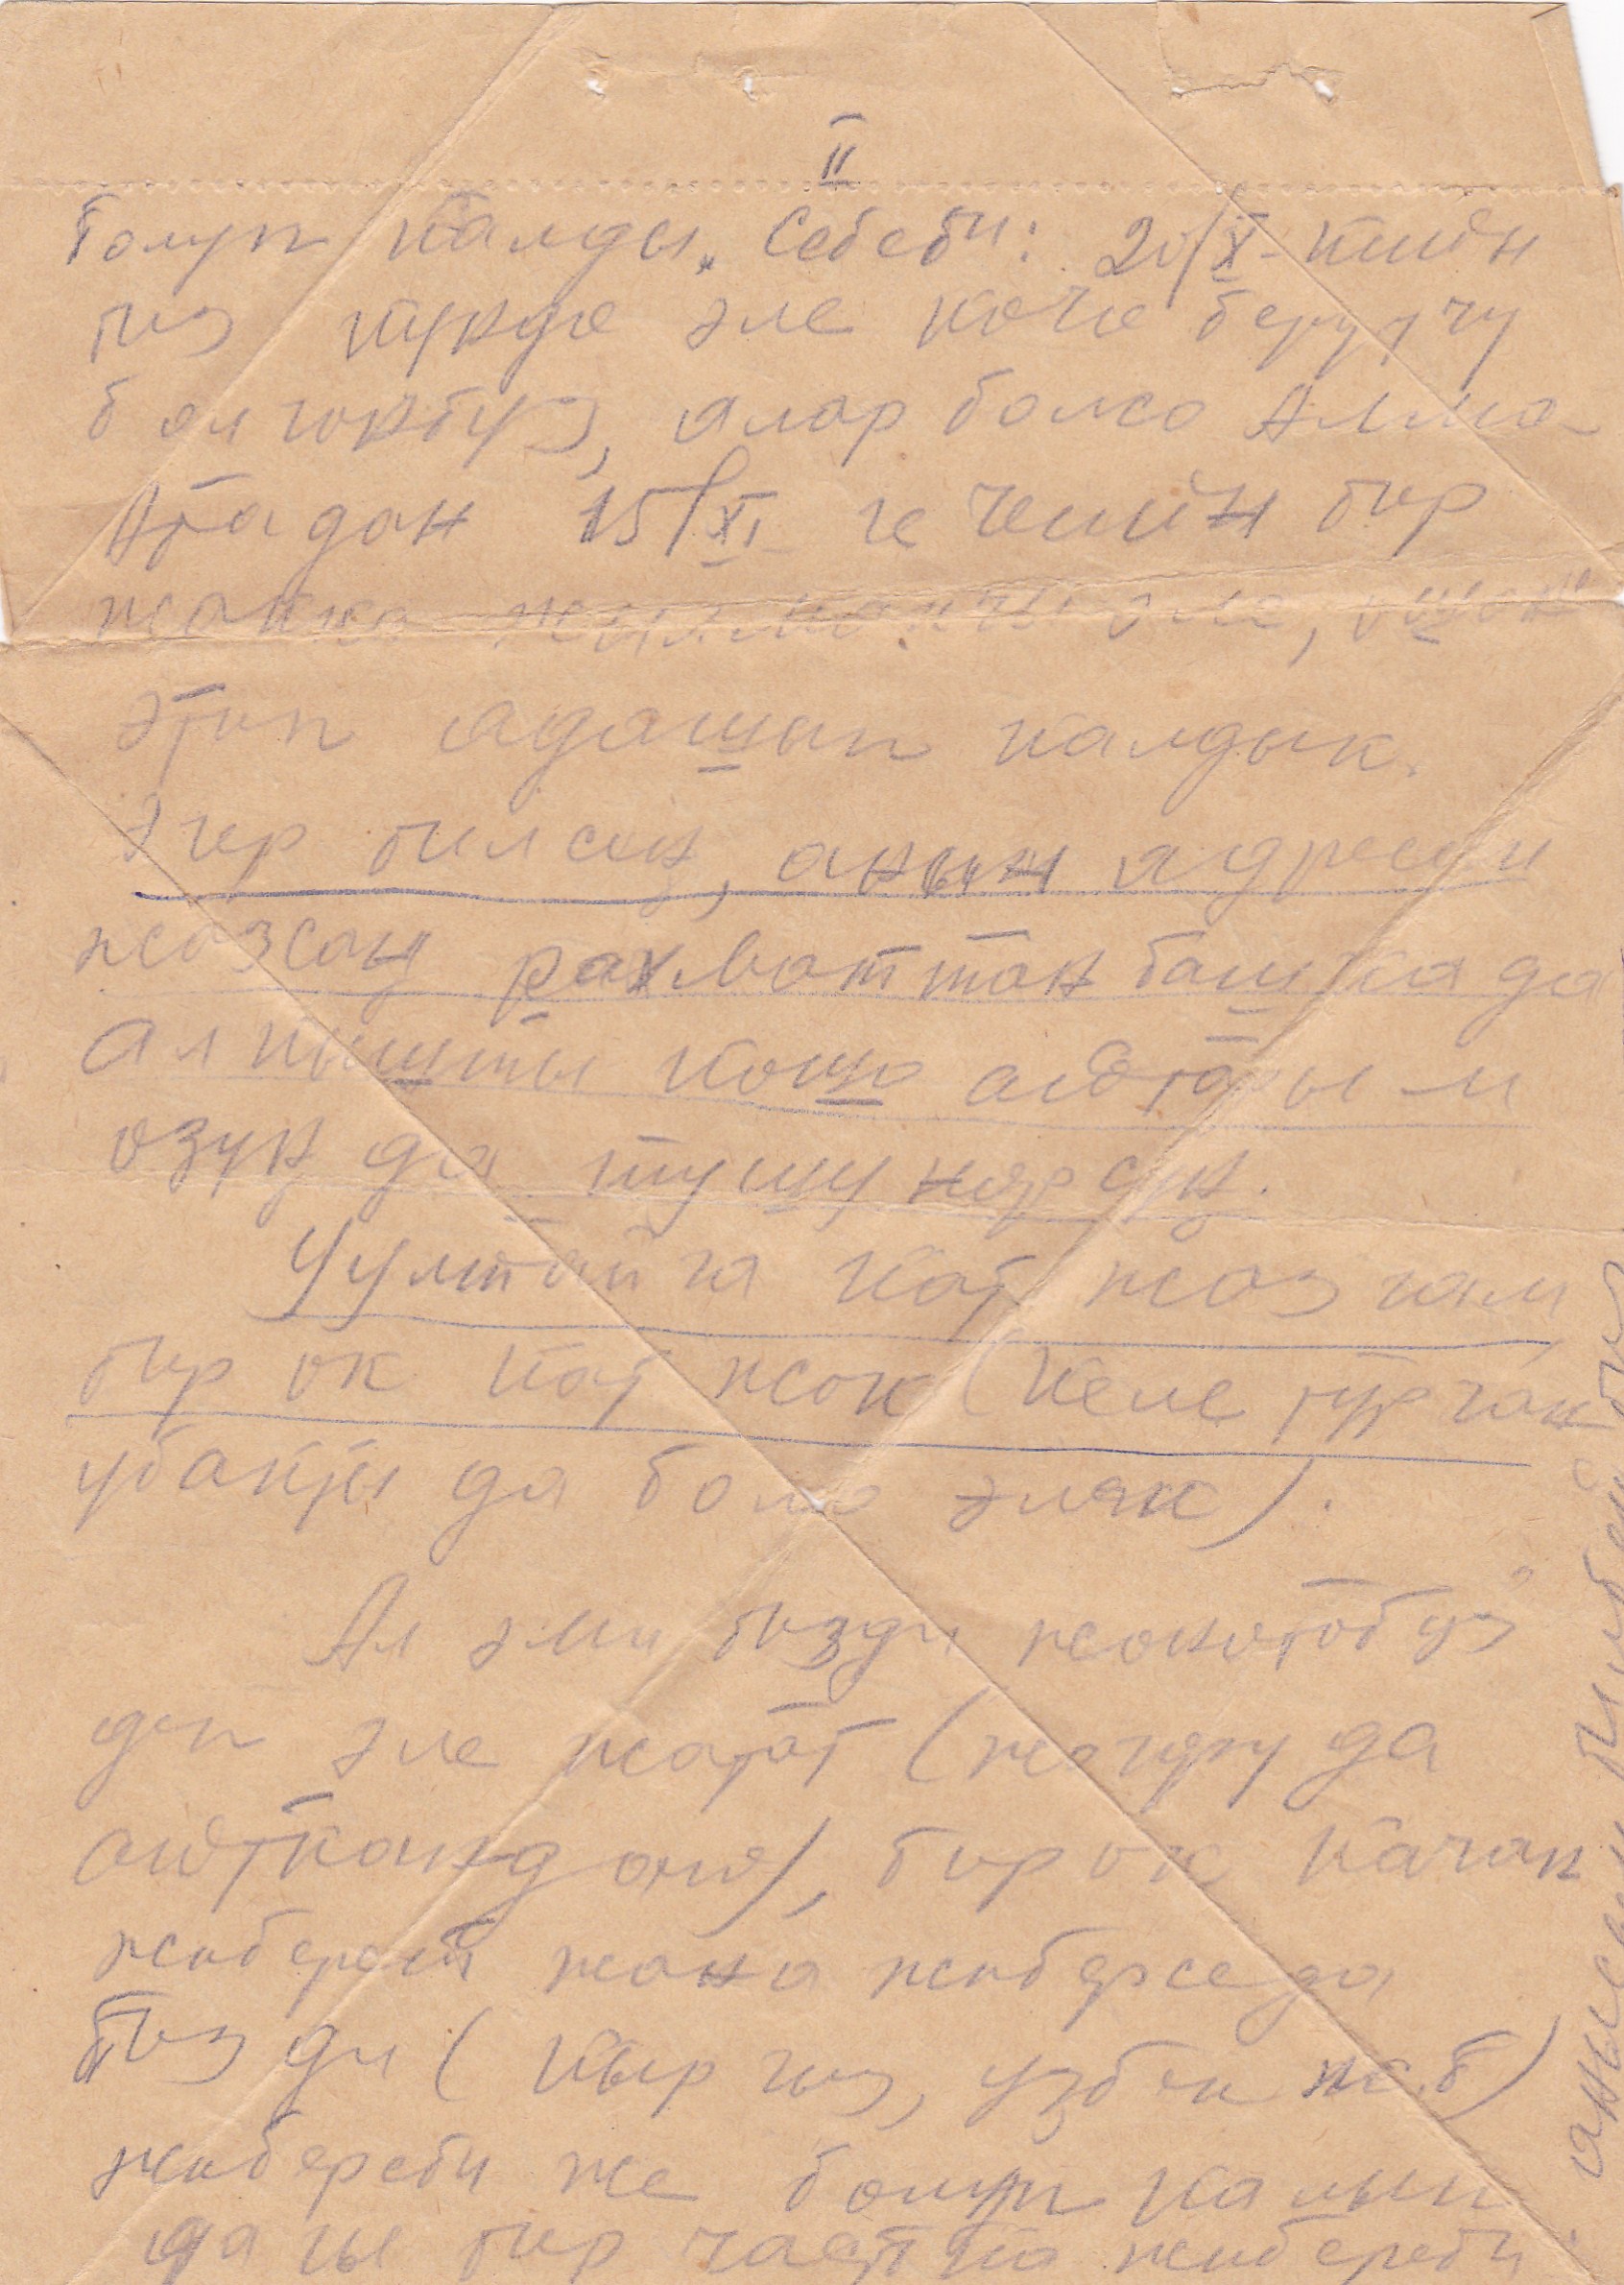 II
болуп калды. Себеби: 20/X- кийин
биз күндө эле көчө берүүчү
болгонбуз, алар болсо Алма-
Атадан 15/XI ге чейин бир
жакка жылмакчы эле, ошон
этип адашып калдык.
Эгер билсең, анын адресин
жазсаң рахматтан башка да
алкышты кошо айтарым
өзүңдө түшүнөрсүң.
Чулпайга кат жазгам
бирок кат жок (келе турган
убакты да боло элек).
Ал эми бизди жөнөтөбүз
деп эле жатат (жогоруда
айткандай), бирок качан
жиберет жана жиберсе да
бизди (кыргыз, узбек ж.б)
жибереби же болуп калып
дагы бир частка жибереби